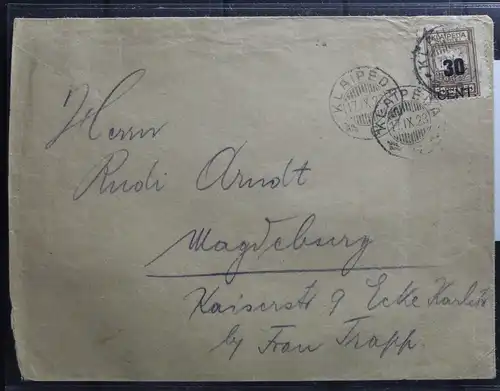 KLAIPEDA
30
CENT
KLAIPEDA
17.IX.23
KLAIPEDA
17.IX.23
Herrn
Rudi Arndt
Magdeburg
Kaiserstr 9 Ecke
by Frau Trapp.